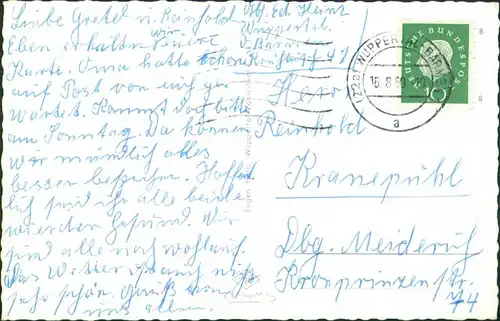 Liebe Gretel u. Reinhold
Abs. Ed. Heinz
Wuppertal
Eben erhalten wir eure
Karte. Oma hatte schon
auf Post von euch ge
wartet. Kommt doch bitte
am Sonntag. Da können
wir mündlich alles
besser besprechen. Hoffent
lich seid ihr alle beide
wieder gesund. Wir
sind alle noch wohlauf.
Das Wetter ist auch nicht
sehr schön. Gruß von
uns allen.
(22a) WUPPERTAL-BARMEN
16.8.60
a
DEUTSCHE BUNDESPOST
10
Herrn
Reinhold
Kranepühl
Dbg. Meiderich
Kronprinzenstr.
74